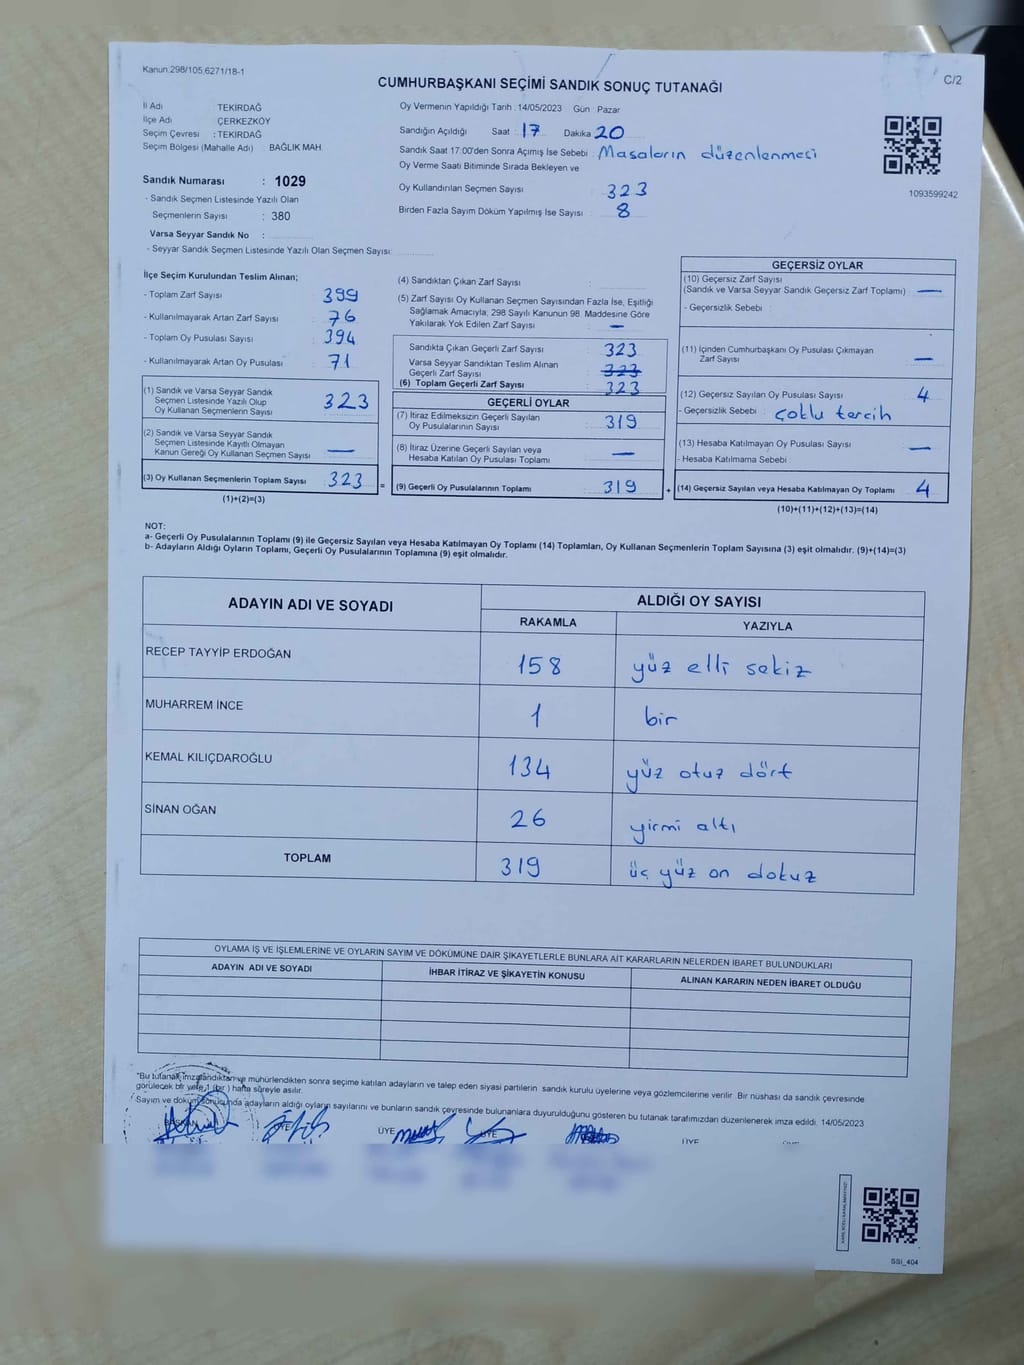 Kanun:298/105,6271/18-1
CUMHURBAŞKANI SEÇİMİ SANDIK SONUÇ TUTANAĞI
C/2
İl Adı TEKİRDAĞ
İlçe Adı ÇERKEZKÖY
Seçim Çevresi : TEKİRDAĞ
Seçim Bölgesi (Mahalle Adı) BAĞLIK MAH.
Sandık Numarası : 1029
- Sandık Seçmen Listesinde Yazılı Olan
Seçmenlerin Sayısı : 380
Varsa Seyyar Sandık No :
- Seyyar Sandık Seçmen Listesinde Yazılı Olan Seçmen Sayısı:
Oy Vermenin Yapıldığı Tarih : 14/05/2023 Gün Pazar
Sandığın Açıldığı Saat : 17 Dakika 20
Sandık Saat 17:00'den Sonra Açımış İse Sebebi : Masaların düzenlenmesi
Oy Verme Saati Bitiminde Sırada Bekleyen ve
Oy Kullandırılan Seçmen Sayısı 323
Birden Fazla Sayım Döküm Yapılmış İse Sayısı : 8
1093599242
İlçe Seçim Kurulundan Teslim Alınan;
- Toplam Zarf Sayısı 399
- Kullanılmayarak Artan Zarf Sayısı : 76
- Toplam Oy Pusulası Sayısı 394
- Kullanılmayarak Artan Oy Pusulası : 71
(1) Sandık ve Varsa Seyyar Sandık
Seçmen Listesinde Yazılı Olup
Oy Kullanan Seçmenlerin Sayısı : 323
(2) Sandık ve Varsa Seyyar Sandık
Seçmen Listesinde Kayıtlı Olmayan
Kanun Gereği Oy Kullanan Seçmen Sayısı : —
(3) Oy Kullanan Seçmenlerin Toplam Sayısı : 323
(1)+(2)=(3)
=
(4) Sandıktan Çıkan Zarf Sayısı :
(5) Zarf Sayısı Oy Kullanan Seçmen Sayısından Fazla İse, Eşitliği
Sağlamak Amacıyla; 298 Sayılı Kanunun 98. Maddesine Göre
Yakılarak Yok Edilen Zarf Sayısı : —
Sandıkta Çıkan Geçerli Zarf Sayısı : 323
Varsa Seyyar Sandıktan Teslim Alınan
Geçerli Zarf Sayısı : 323
(6) Toplam Geçerli Zarf Sayısı : 323
GEÇERLİ OYLAR
(7) İtiraz Edilmeksizin Geçerli Sayılan
Oy Pusulalarının Sayısı : 319
(8) İtiraz Üzerine Geçerli Sayılan veya
Hesaba Katılan Oy Pusulası Toplamı : —
(9) Geçerli Oy Pusulalarının Toplamı : 319
+
GEÇERSİZ OYLAR
(10) Geçersiz Zarf Sayısı
(Sandık ve Varsa Seyyar Sandık Geçersiz Zarf Toplamı) : —
- Geçersizlik Sebebi
(11) İçinden Cumhurbaşkanı Oy Pusulası Çıkmayan
Zarf Sayısı —
(12) Geçersiz Sayılan Oy Pusulası Sayısı : 4
- Geçersizlik Sebebi : çoklu tercih
(13) Hesaba Katılmayan Oy Pusulası Sayısı : —
- Hesaba Katılmama Sebebi :
(14) Geçersiz Sayılan veya Hesaba Katılmayan Oy Toplamı : 4
(10)+(11)+(12)+(13)=(14)
NOT:
a- Geçerli Oy Pusulalarının Toplamı (9) ile Geçersiz Sayılan veya Hesaba Katılmayan Oy Toplamı (14) Toplamları, Oy Kullanan Seçmenlerin Toplam Sayısına (3) eşit olmalıdır. (9)+(14)=(3)
b- Adayların Aldığı Oyların Toplamı, Geçerli Oy Pusulalarının Toplamına (9) eşit olmalıdır.
ADAYIN ADI VE SOYADI ALDIĞI OY SAYISI
RAKAMLA YAZIYLA
RECEP TAYYİP ERDOĞAN 158 yüz elli sekiz
MUHARREM İNCE 1 bir
KEMAL KILIÇDAROĞLU 134 yüz otuz dört
SİNAN OĞAN 26 yirmi altı
TOPLAM 319 üç yüz on dokuz
OYLAMA İŞ VE İŞLEMLERİNE VE OYLARIN SAYIM VE DÖKÜMÜNE DAİR ŞİKAYETLERLE BUNLARA AİT KARARLARIN NELERDEN İBARET BULUNDUKLARI
ADAYIN ADI VE SOYADI İHBAR İTİRAZ VE ŞİKAYETİN KONUSU ALINAN KARARIN NEDEN İBARET OLDUĞU
*Bu tutanak imzalandıktan ve mühürlendikten sonra seçime katılan adayların ve talep eden siyasi partilerin sandık kurulu üyelerine veya gözlemcilerine verilir. Bir nüshası da sandık çevresinde
görülecek bir yere 1 (bir) hafta süreyle asılır.
Sayım ve döküm sonucunda adayların aldığı oyların sayılarını ve bunların sandık çevresinde bulunanlara duyurulduğunu gösteren bu tutanak tarafımızdan düzenlenerek imza edildi. 14/05/2023
BAŞKAN ÜYE ÜYE ÜYE ÜYE
SSI_404